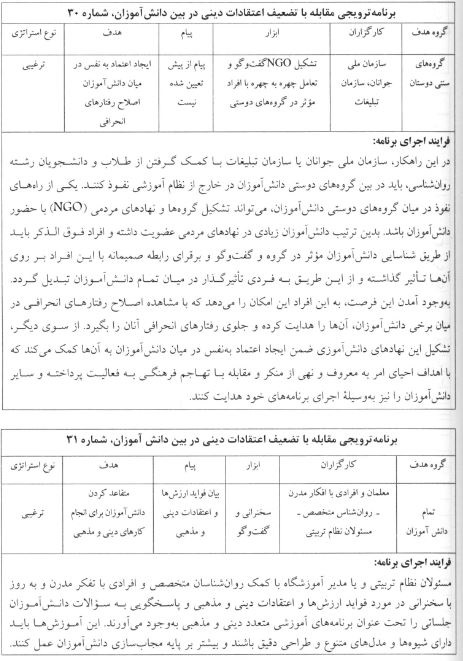 برنامه ترویجی مقابله با تضعیف اعتقادات دینی در بین دانش آموزان، شماره ۳۰
گروه هدف کارگزاران ابزار پیام هدف نوع استراتژی
گروه‌های سازمان ملی تشکیل NGOگفت‌وگو و پیام از پیش ایجاد اعتماد به نفس در ترغیبی
سنی دوستان جوانان، سازمان تعامل چهره به چهره با افراد تعیین شده میان دانش‌آموزان
تبلیغات مؤثر در گروه‌های دوستی نیست اصلاح رفتارهای
انحرافی
فرایند اجرای برنامه:
در این راهکار، سازمان ملی جوانان یا سازمان تبلیغات با کمک گرفتن از طلاب و دانشجویان رشته
روان‌شناسی، باید در بین گروه‌های دوستی دانش‌آموزان در خارج از نظام آموزشی نفوذ کنند. یکی از راه‌های
نفوذ در میان گروه‌های دوستی دانش‌آموزان، می‌تواند تشکیل گروه‌ها و نهادهای مردمی (NGO) با حضور
دانش‌آموزان باشد. بدین ترتیب دانش‌آموزان زیادی در نهادهای مردمی عضویت داشته و افراد فوق الذکر باید
از طریق شناسایی دانش‌آموزان مؤثر در گروه و گفت‌وگو و برقرای رابطه صمیمانه با این افراد بر روی
آن‌ها تأثیر گذاشته و از این طریق به فردی تأثیرگذار در میان تمام دانش‌آموزان تبدیل گردد.
به‌وجود آمدن این فرصت، به این افراد این امکان را می‌دهد که با مشاهده اصلاح رفتارهای انحرافی در
میان برخی دانش‌آموزان، آن‌ها را هدایت کرده و جلوی رفتارهای انحرافی آنان را بگیرد. از سوی دیگر،
تشکیل این نهادهای دانش‌آموزی ضمن ایجاد اعتماد به‌نفس در میان دانش‌آموزان به آن‌ها کمک می‌کند که
با اهداف احیای امر به معروف و نهی از منکر و مقابله با تهاجم فرهنگی به فعالیت پرداخته و سایر
دانش‌آموزان را نیز به‌وسیلهٔ اجرای برنامه‌های خود هدایت کنند.
برنامه ترویجی مقابله با تضعیف اعتقادات دینی در بین دانش آموزان، شماره ۳۱
گروه هدف کارگزاران ابزار پیام هدف نوع استراتژی
تمام معلمان و افرادی با افکار مدرن سخنرانی و بیان فواید ارزش‌ها متقاعد کردن ترغیبی
دانش آموزان ـ روان‌شناس متخصص ـ گفت‌وگو و اعتقادات دینی دانش‌آموزان برای انجام
مسئولان نظام تربیتی و مذهبی کارهای دینی و مذهبی
فرایند اجرای برنامه:
مسئولان نظام تربیتی و یا مدیر آموزشگاه با کمک روان‌شناسان متخصص و افرادی با تفکر مدرن و به روز
با سخنرانی در مورد فواید ارزش‌ها و اعتقادات دینی و مذهبی و پاسخگویی به سؤالات دانش‌آموزان
جلساتی را تحت عنوان برنامه‌های آموزشی متعدد دینی و مذهبی به‌وجود می‌آورند. این آموزش‌ها باید
دارای شیوه‌ها و مدل‌های متنوع و طراحی دقیق باشند و بیشتر بر پایه مجاب‌سازی دانش‌آموزان عمل کنند.